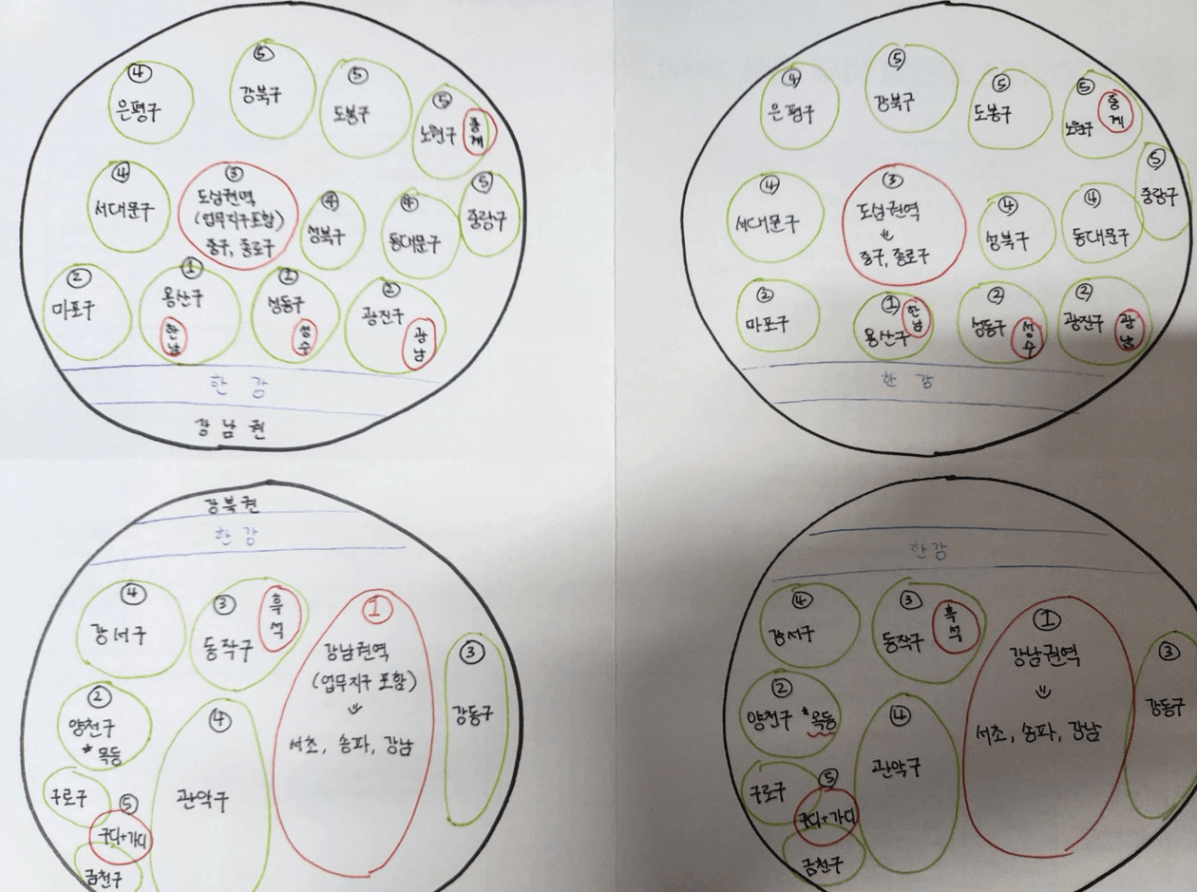 ④
은평구
⑤
강북구
⑤
도봉구
⑤
노원구
중계
④
서대문구
③
도심권역
(업무지구포함)
중구, 종로구
④
성북구
④
동대문구
⑤
중랑구
②
마포구
①
용산구
한남
②
성동구
성수
②
광진구
광남
한강
강남권
④
은평구
⑤
강북구
⑤
도봉구
⑤
노원구
중계
④
서대문구
③
도심권역
중구, 종로구
④
성북구
④
동대문구
⑤
중랑구
②
마포구
①
용산구
한남
②
성동구
성수
②
광진구
광남
한강
강북권
한강
④
강서구
③
동작구
흑석
①
강남권역
(업무지구 포함)
서초, 송파, 강남
③
강동구
②
양천구
*목동
④
관악구
구로구
⑤
구디+가디
금천구
한강
④
강서구
③
동작구
흑석
①
강남권역
서초, 송파, 강남
③
강동구
②
양천구 *목동
④
관악구
구로구
⑤
구디+가디
금천구